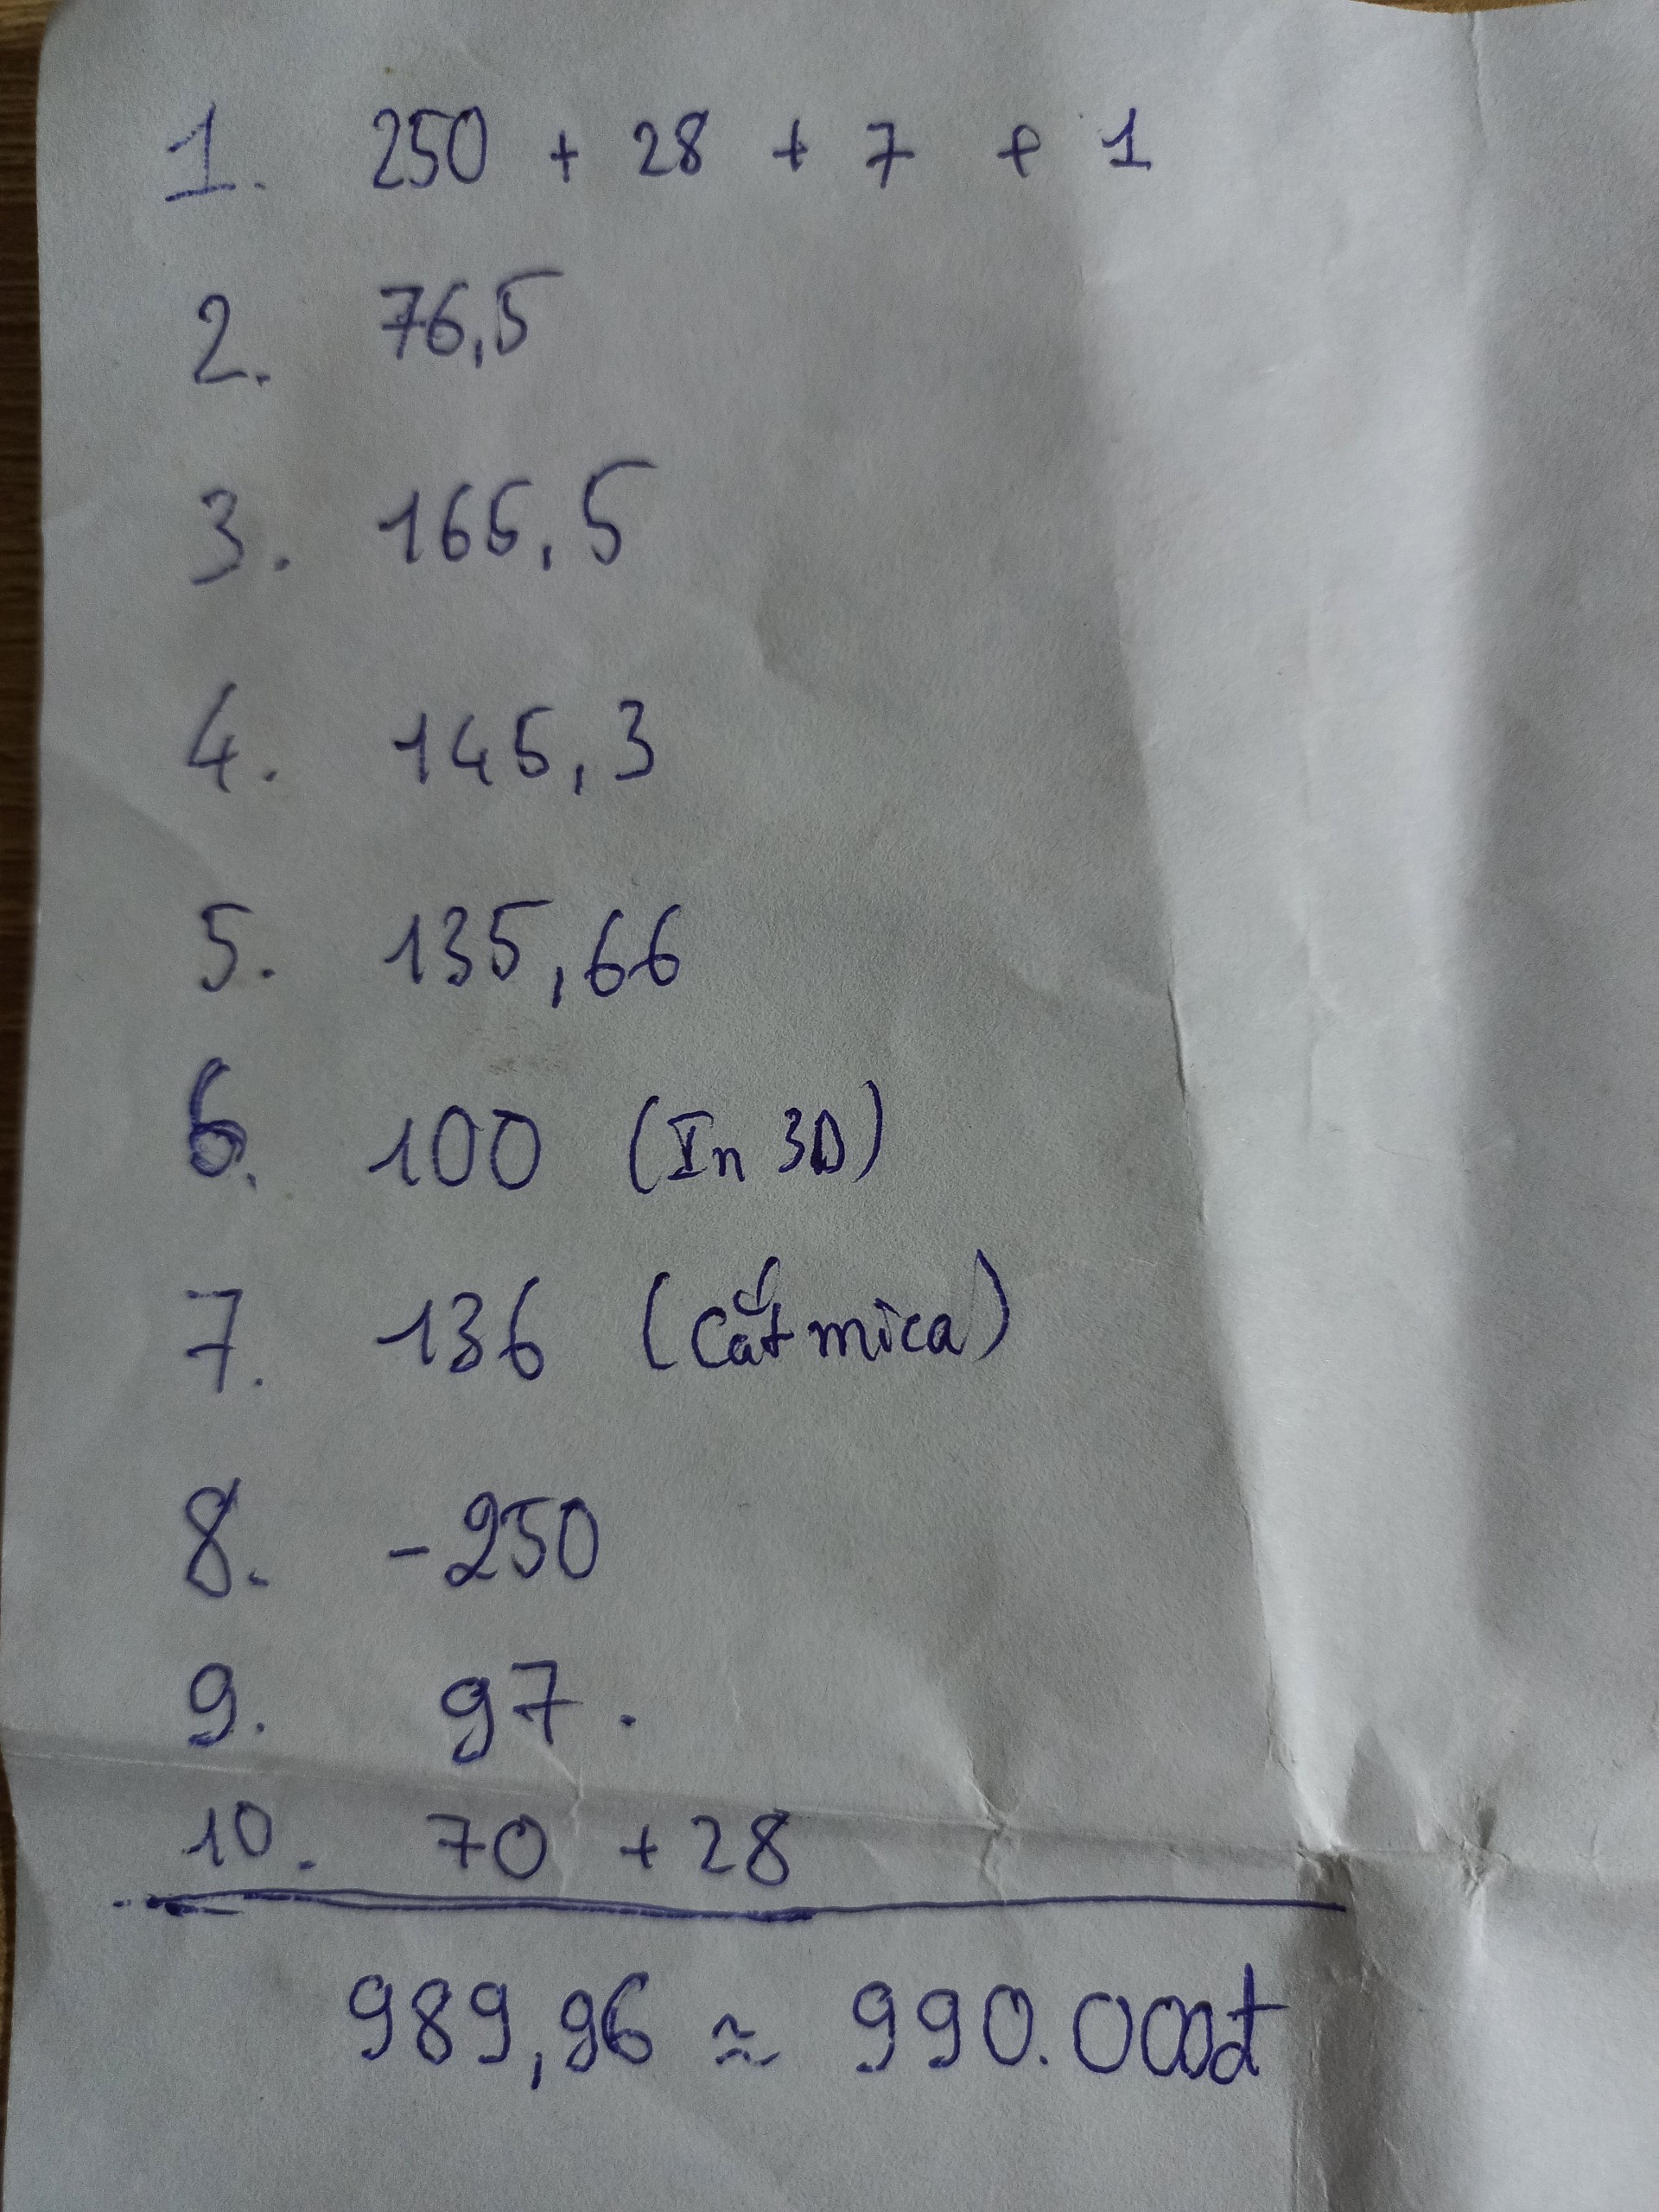 1. 250 + 28 + 7 + 1
2. 76,5
3. 165,5
4. 145,3
5. 135,66
6. 100 (In 3D)
7. 136 (Cắt mica)
8. -250
9. 97.
10. 70 + 28
989,96 ≈ 990.000đ